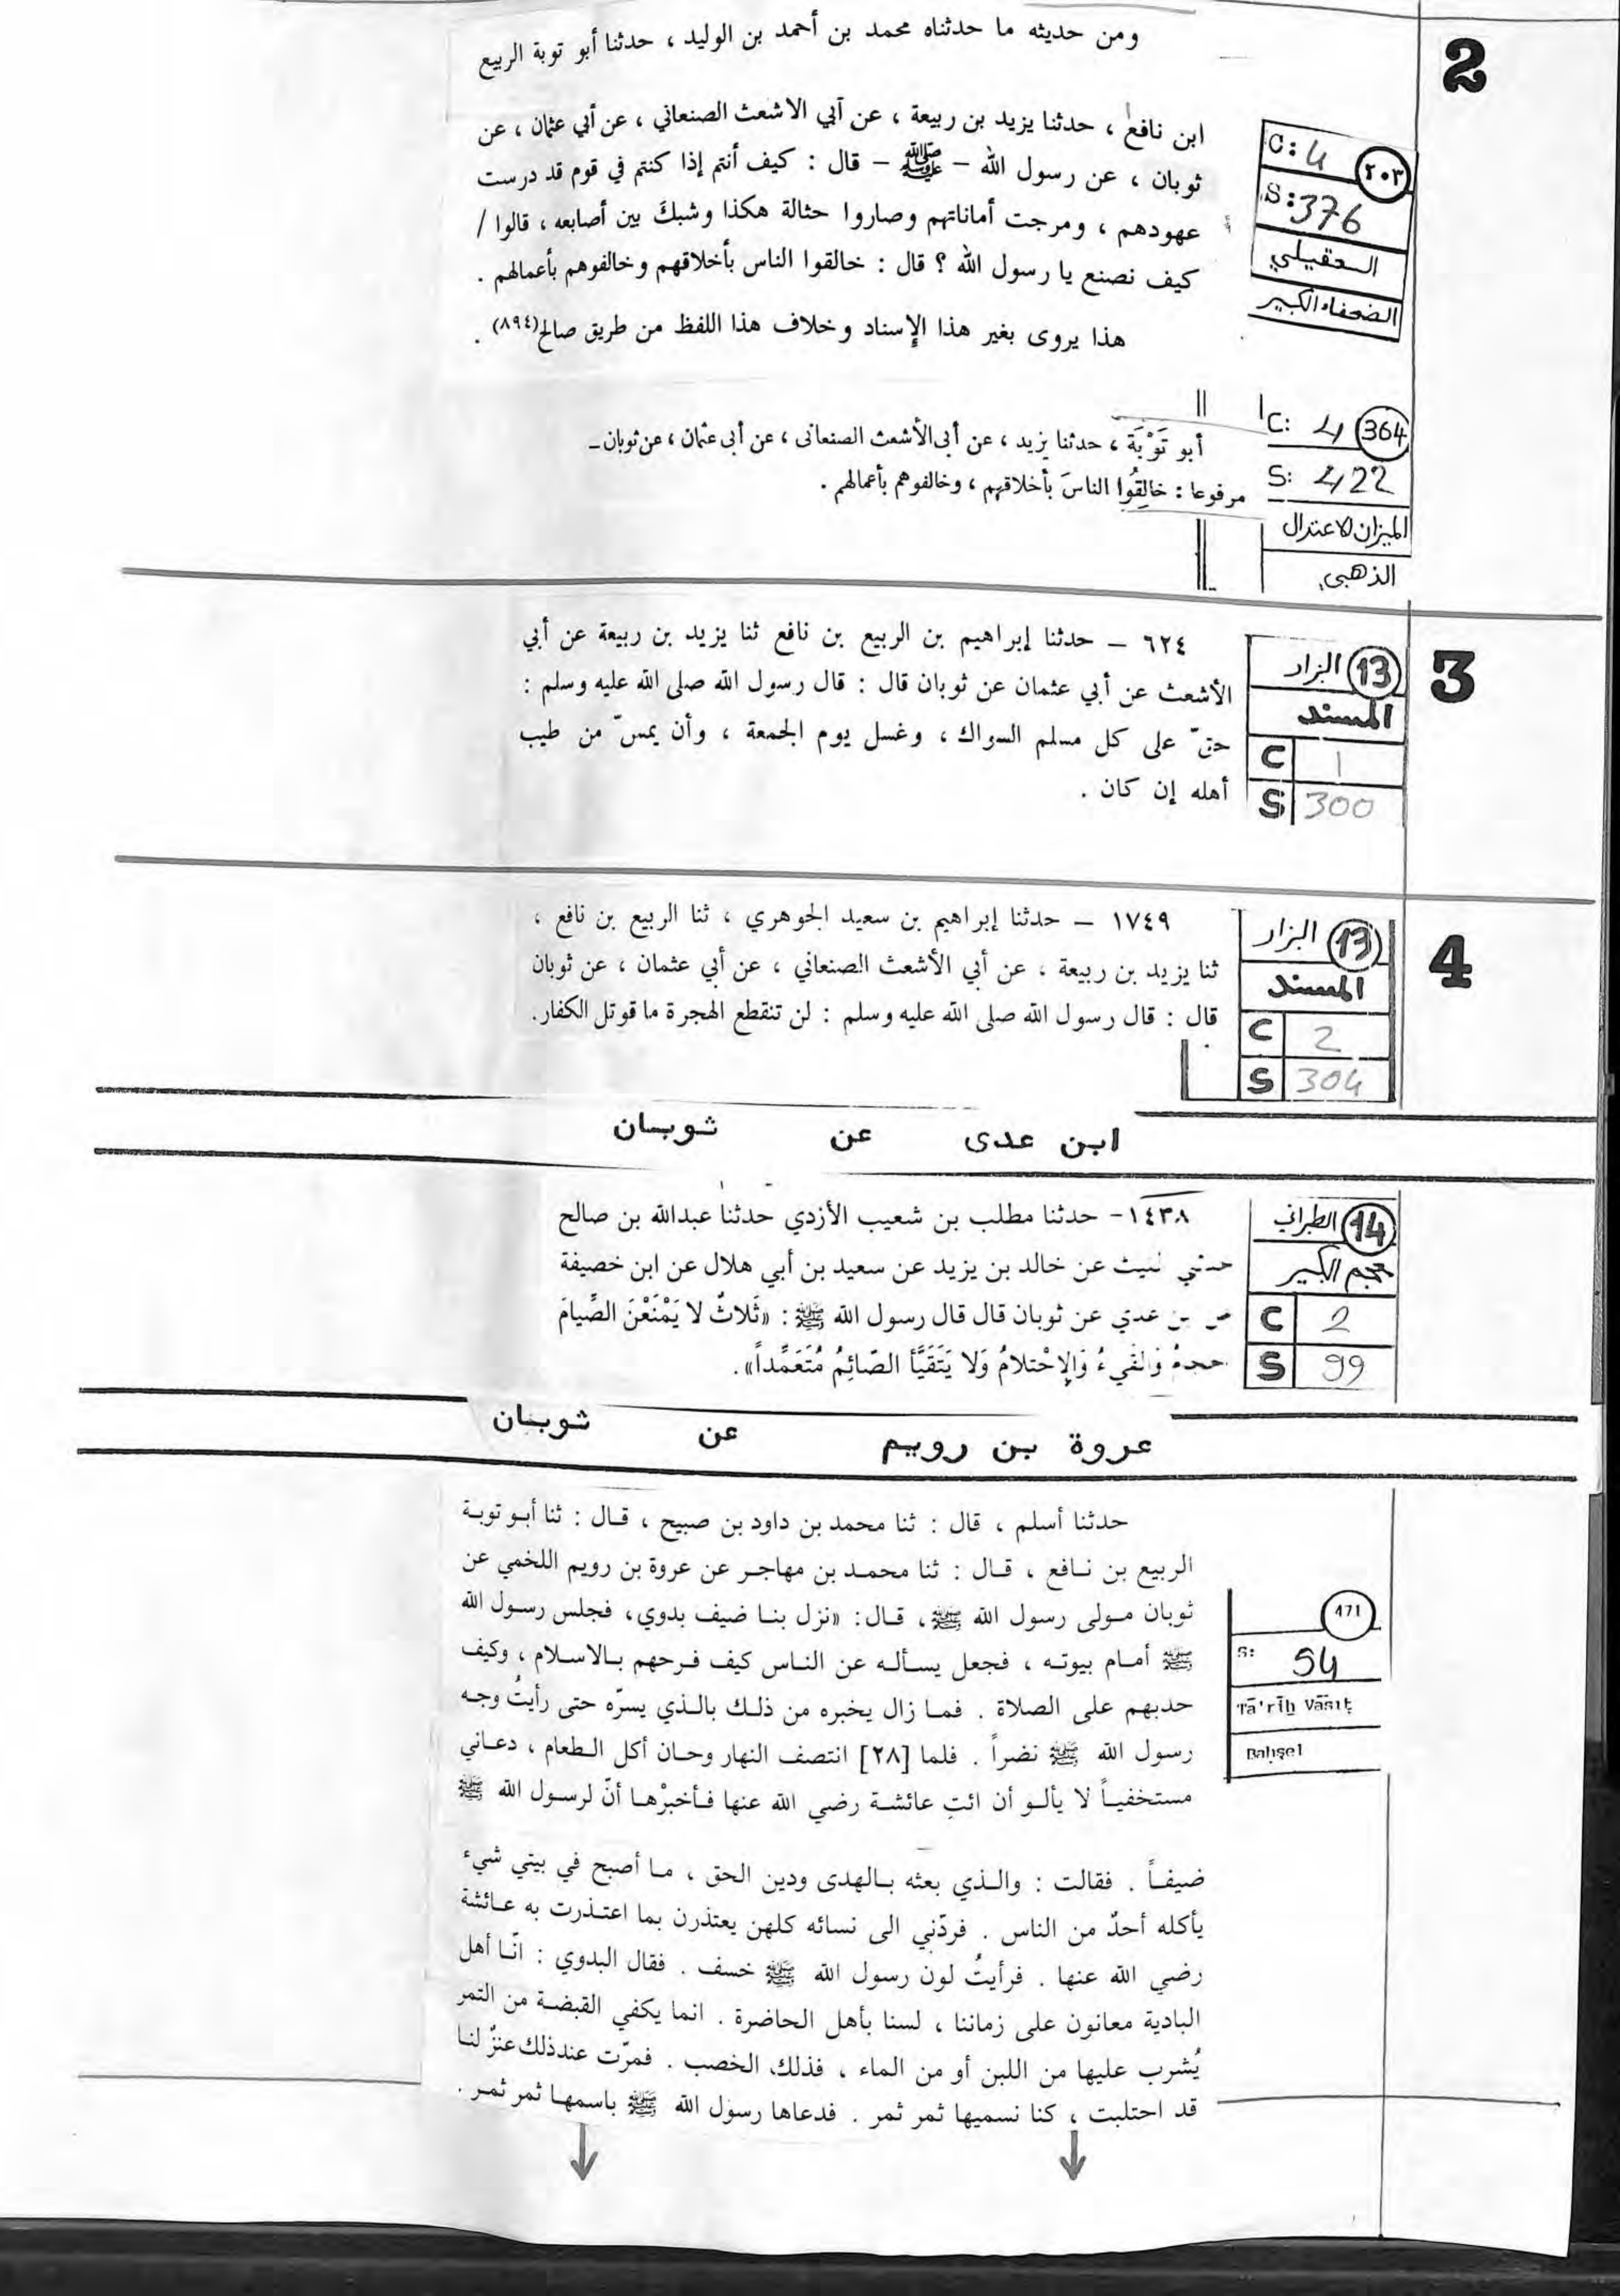 2
ومن حديثه ما حدثناه محمد بن أحمد بن الوليد ، حدثنا أبو توبة الربيع
ابن نافع ، حدثنا يزيد بن ربيعة ، عن أبي الاشعث الصنعاني ، عن أبي عثمان ، عن
ثوبان ، عن رسول الله – ﷺ – قال : كيف أنتم إذا كنتم في قوم قد درست
عهودهم ، ومرجت أماناتهم وصاروا حثالة هكذا وشبكَ بين أصابعه ، قالوا /
كيف نصنع يا رسول الله ؟ قال : خالقوا الناس بأخلاقهم وخالفوهم بأعمالهم .
هذا يروى بغير هذا الإسناد وخلاف هذا اللفظ من طريق صالح(٨٩٤) .
C: 4
٢٠٣
S: 376
العقيلي
الضعفاء الكبير
أبو تَوْبَة ، حدثنا يزيد ، عن أبى الأشعث الصنعانى ، عن أبى عثمان ، عن ثوبان –
مرفوعا : خالِقُوا الناسَ بأخلاقهم ، وخالفوهم بأعمالهم .
C: 4
364
S: 422
الميزان الاعتدال
الذهبي
3
٦٢٤ – حدثنا إبراهيم بن الربيع بن نافع ثنا يزيد بن ربيعة عن أبي
الأشعث عن أبي عثمان عن ثوبان قال : قال رسول الله صلى الله عليه وسلم :
حقّ على كل مسلم السواك ، وغسل يوم الجمعة ، وأن يمسّ من طيب
أهله إن كان .
13 البزار
المسند
C 1
S 300
4
١٧٤٩ – حدثنا إبراهيم بن سعيد الجوهري ، ثنا الربيع بن نافع ،
ثنا يزيد بن ربيعة ، عن أبي الأشعث الصنعاني ، عن أبي عثمان ، عن ثوبان
قال : قال رسول الله صلى الله عليه وسلم : لن تنقطع الهجرة ما قوتل الكفار.
13 البزار
المسند
C 2
S 304
ابن عدى عن ثوبان
١٤٣٨– حدثنا مطلب بن شعيب الأزدي حدثنا عبدالله بن صالح
حدثني لليث عن خالد بن يزيد عن سعيد بن أبي هلال عن ابن خصيفة
بن عدي عن ثوبان قال قال رسول الله ﷺ : «ثَلاثٌ لا يَمْنَعْنَ الصِّيامَ
وَالقَيءُ وَالإحْتلامُ وَلا يَتَقَيَّأ الصّائِمُ مُتَعَمِّداً».
14 الطبراني
الكبير
C 2
S 99
عروة بن رويم عن ثوبان
حدثنا أسلم ، قال : ثنا محمد بن داود بن صبيح ، قـال : ثنا أبـو توبـة
الربيع بن نـافع ، قـال : ثنا محمـد بن مهاجـر عن عروة بن رويم اللخمي عن
ثوبان مـولى رسول الله ﷺ ، قـال : «نزل بنـا ضيف بدوي، فجلس رسـول الله
ﷺ أمـام بيوتـه ، فجعل يسـألـه عن النـاس كيف فـرحهم بـالاسـلام ، وكيف
حدبهم على الصلاة . فمـا زال يخبره من ذلـك بالـذي يسرّه حتى رأيتُ وجـه
رسول الله ﷺ نضراً . فلما [٢٨] انتصف النهار وحـان أكل الـطعام ، دعـاني
مستخفيـاً لا يألـو أن ائتِ عائشـة رضي الله عنها فـأخبرْهـا أنّ لرسـول الله ﷺ
ضيفـاً . فقالت : والـذي بعثه بـالهدى ودين الحق ، مـا أصبح في بيتي شيء
يأكله أحدٌ من الناس . فردّني الى نسائه كلهن يعتذرن بما اعتـذرت به عـائشة
رضي الله عنها . فرأيتُ لون رسول الله ﷺ خسف . فقال البدوي : انّـا أهل
البادية معانون على زماننا ، لسنا بأهل الحاضرة . انما يكفي القبضـة من التمر
يُشرب عليها من اللبن أو من الماء ، فذلك الخصب . فمرّت عند ذلك عنزٌ لنـا
قد احتلبت ، كنا نسميها ثمر ثمر . فدعاها رسول الله ﷺ باسمهـا ثمر ثمـر .
471
S: 54
Tā'rīḫ Vāsıṭ
Baḥşel